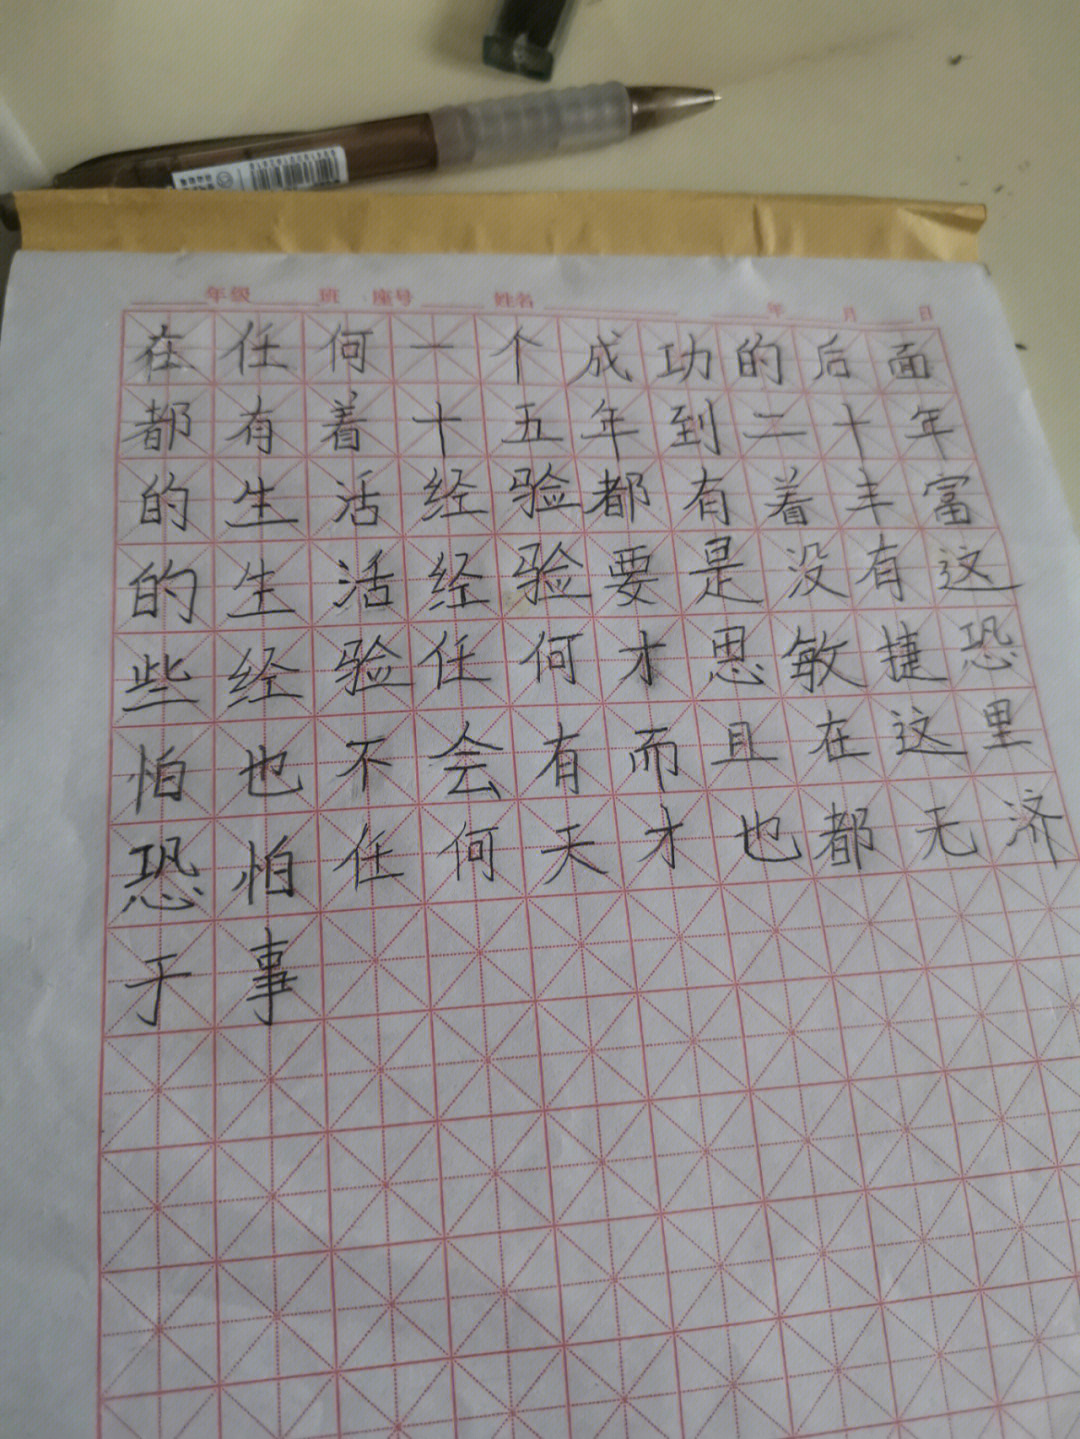 年级 班 座号 姓名 年 月 日
在任何一个成功的后面
都有着十五年到二十年
的生活经验都有着丰富
的生活经验要是没有这
些经验任何才思敏捷恐
怕也不会有而且在这里
恐怕任何天才也都无济
于事